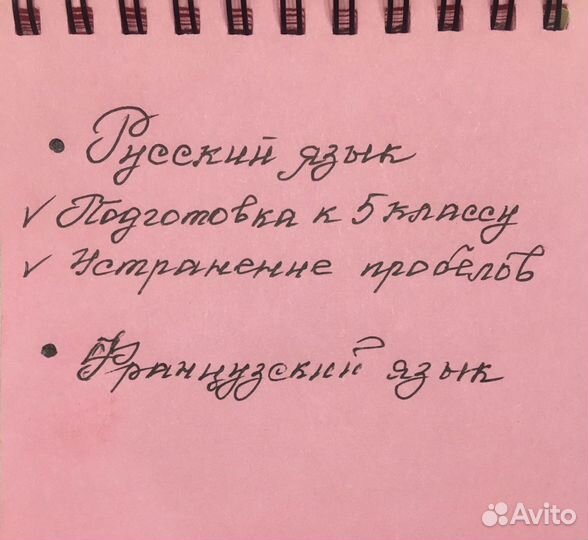 • Русский язык
✓ Подготовка к 5 классу
✓ Устранение пробелов
• Французский язык
Avito